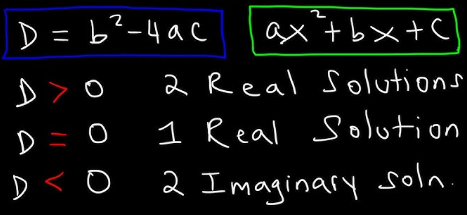 D = b²-4ac ax²+bx+c
D > 0 2 Real Solutions
D = 0 1 Real Solution
D < 0 2 Imaginary soln.